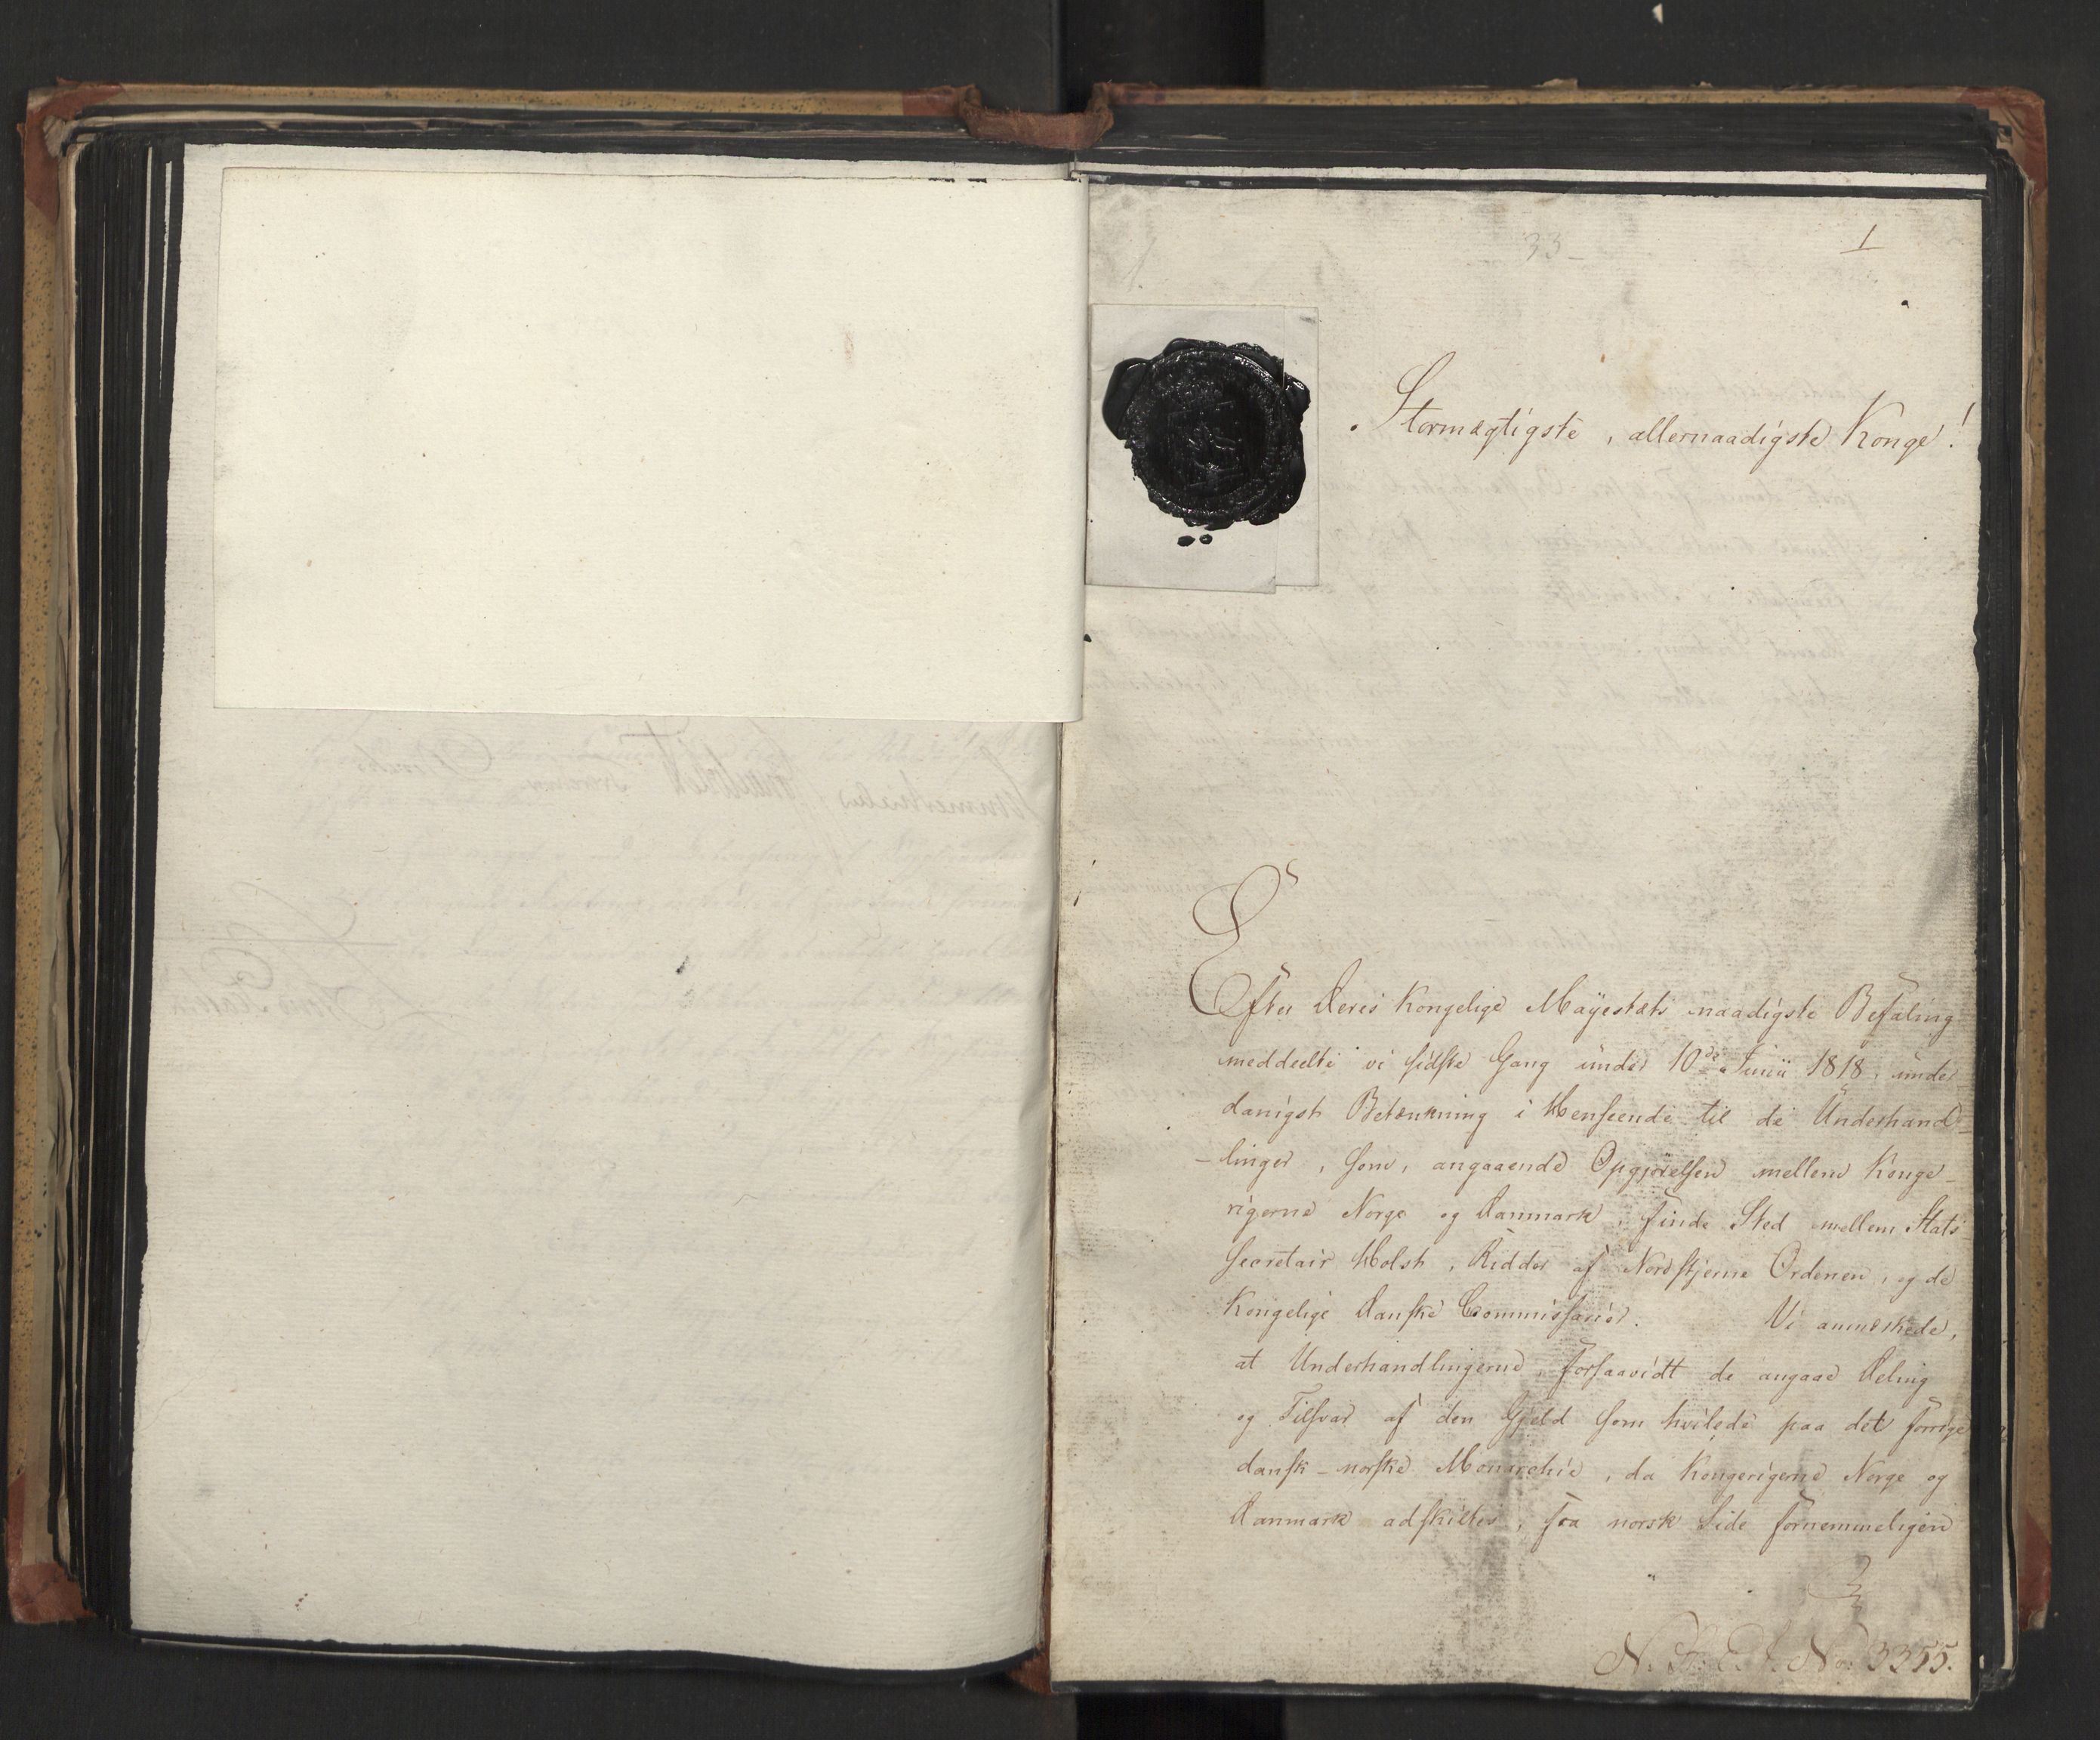 33
1
Stormægtigste, allernaadigste Konge!
Efter Deres Kongelige Mayestæts naadigste Befaling
meddeelte vi sidste Gang under 10de Junii 1818, under
danigst Betænkning i Henseende til de Underhand-
-linger, som, angaaende Opgjørelsen mellem Konge-
rigerne Norge og Danmark, finde Sted mellem Stats
Secretair Holst, Ridder af Nordstjerne Ordenen, og de
Kongelige danske Commissairer. Vi anmærkede,
at Underhandlingerne, forsaavidt de angaae Deling
og Tilsvar af den Gjeld som hvilede paa det forrige
dansk-norske Monarchie, da Kongerigerne Norge og
Danmark adskiltes, fra norsk Side fornemmeligen
No: 3355.